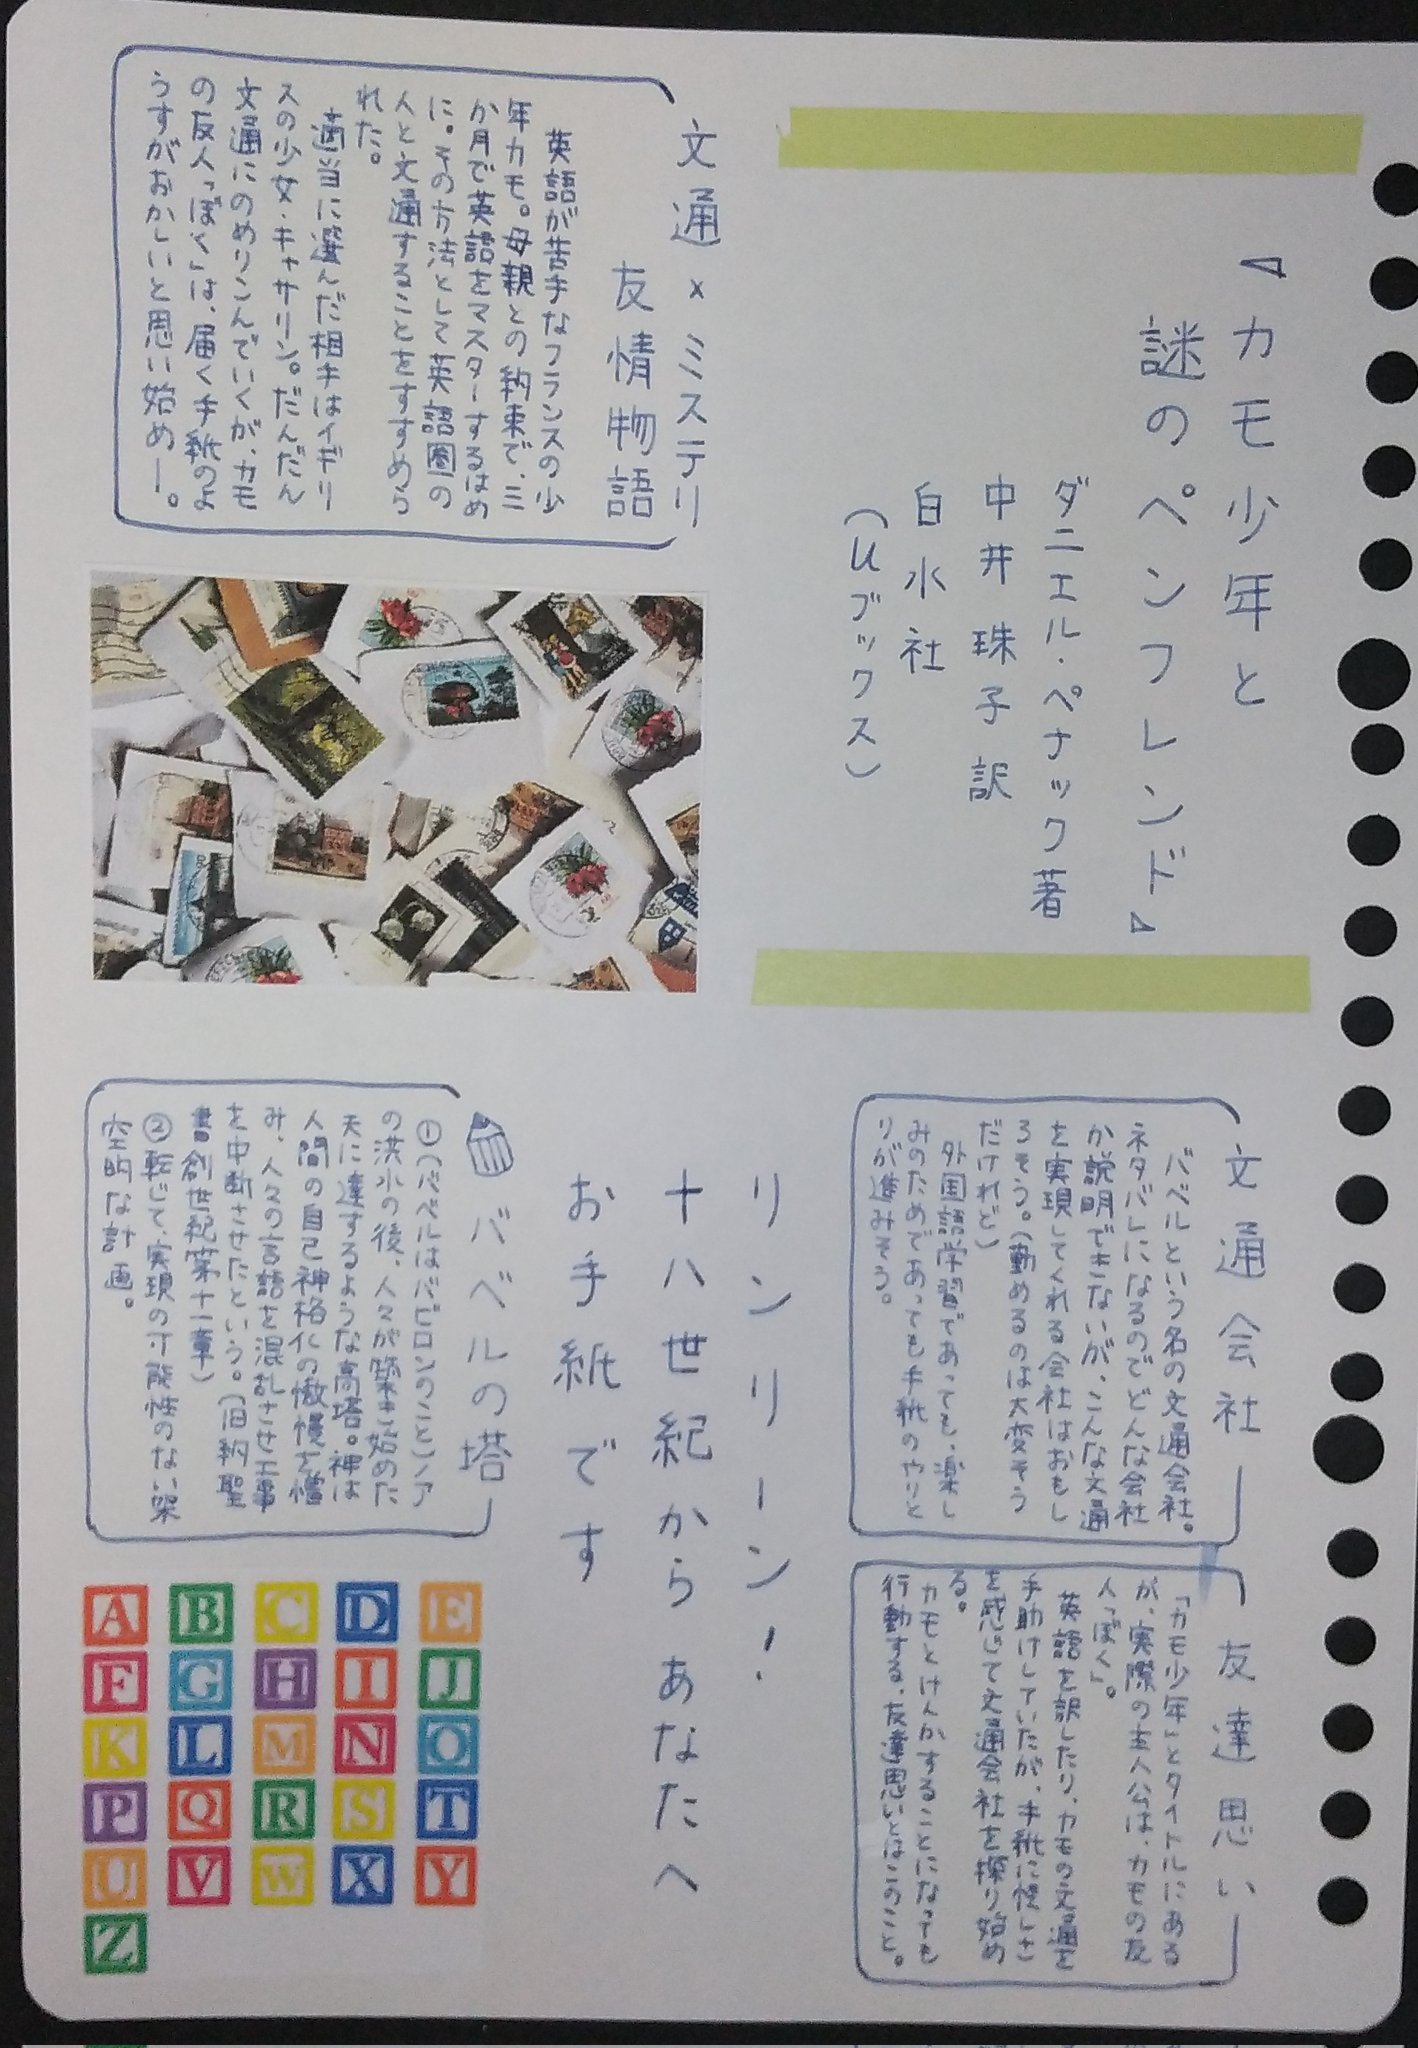 『カモ少年と
謎のペンフレンド』
ダニエル・ペナック著
中井珠子訳
白水社
(Uブックス)
文通×ミステリ
友情物語
英語が苦手なフランスの少
年カモ。母親との約束で、三
か月で英語をマスターするはめ
に。その方法として英語圏の
人と文通することをすすめら
れた。
適当に選んだ相手はイギリ
スの少女・キャサリン。だんだん
文通にのめりこんでいくが、カモ
の友人「ぼく」は、届く手紙のよ
うすがおかしいと思い始め―。
文通会社
バベルという名の文通会社。
ネタバレになるのでどんな会社
か説明できないが、こんな文通
を実現してくれる会社はおもし
ろそう。(勤めるのは大変そう
だけれど)
外国語学習であっても、楽し
みのためであっても手紙のやりと
りが進みそう。
友達思い
「カモ少年」とタイトルにある
が、実際の主人公は、カモの友
人「ぼく」。
英語を訳したり、カモの文通を
手助けしていたが、手紙に怪しさ
を感じて文通会社を探り始め
る。
カモとけんかすることになっても
行動する、友達思いとはこのこと。
リンリーン!
十八世紀からあなたへ
お手紙です
バベルの塔
①(バベルはバビロンのこと)ノア
の洪水の後、人々が築き始めた
天に達するような高塔。神は
人間の自己神格化の傲慢を憎
み、人々の言語を混乱させ工事
を中断させたという。(旧約聖
書創世紀第十一章)
②転じて、実現の可能性のない架
空的な計画。
A B C D E
F G H I J
K L M N O
P Q R S T
U V W X Y
Z